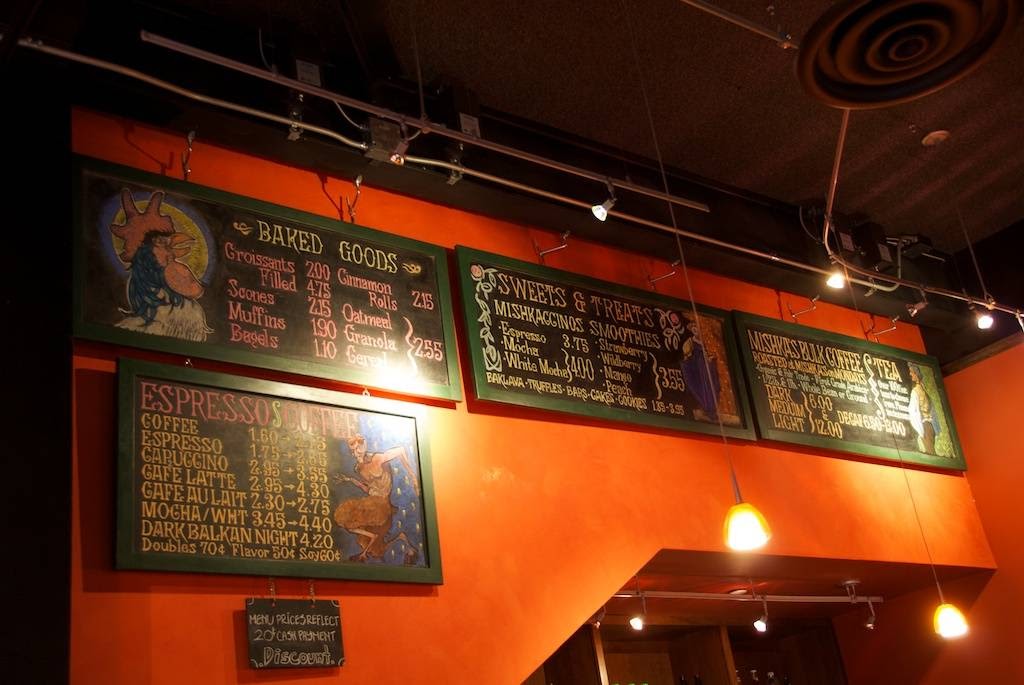 BAKED GOODS
Croissants 2.00
Filled 4.75
Scones 2.15
Muffins 1.90
Bagels 1.10
Cinnamon
Rolls 2.15
Oatmeal
Granola
Cereal
2.55
ESPRESSO & COFFEE
COFFEE 1.60
ESPRESSO 1.75
CAPUCCINO 2.95 → 3.55
CAFE LATTE 2.95 → 4.30
CAFE AU LAIT 2.30 → 2.75
MOCHA/WHT 3.45 → 4.40
DARK BALKAN NIGHT 4.20
Doubles 70¢ Flavor 50¢ Soy 60¢
MENU PRICES REFLECT
20¢ CASH PAYMENT
DISCOUNT.
SWEETS & TREATS
MISHKACCINOS
• Espresso 3.75
• Mocha
• White Mocha
4.00
SMOOTHIES
• Strawberry
• Wildberry
• Mango
• Peach
3.55
BAKLAVA • TRUFFLES • BARS • CAKES • COOKIES 1.35-3.95
MISHKA'S BULK COFFEE & TEA
DARK
MEDIUM
LIGHT
6.00
12.00
DECAF